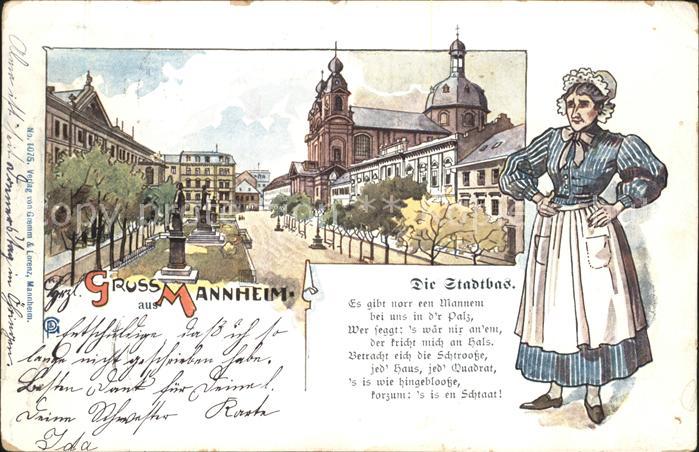 No. 1075. Verlag von Gramm & Lorenz, Mannheim.
Hrzl.
GRUSS
aus MANNHEIM.
entschuldige, daß ich so
lange nicht geschrieben habe.
Besten Dank für Deine l.
Karte
Deine Schwester
Ida
Die Stadtbas.
Es gibt norr een Mannem
bei uns in d'r Palz,
Wer seggt: 's wär nix an'em,
der kricht mich an Hals.
Betracht eich die Schtrooße,
jed' Haus, jed' Quadrat,
's is wie hingeblooße,
korzum: 's is en Schtaat!